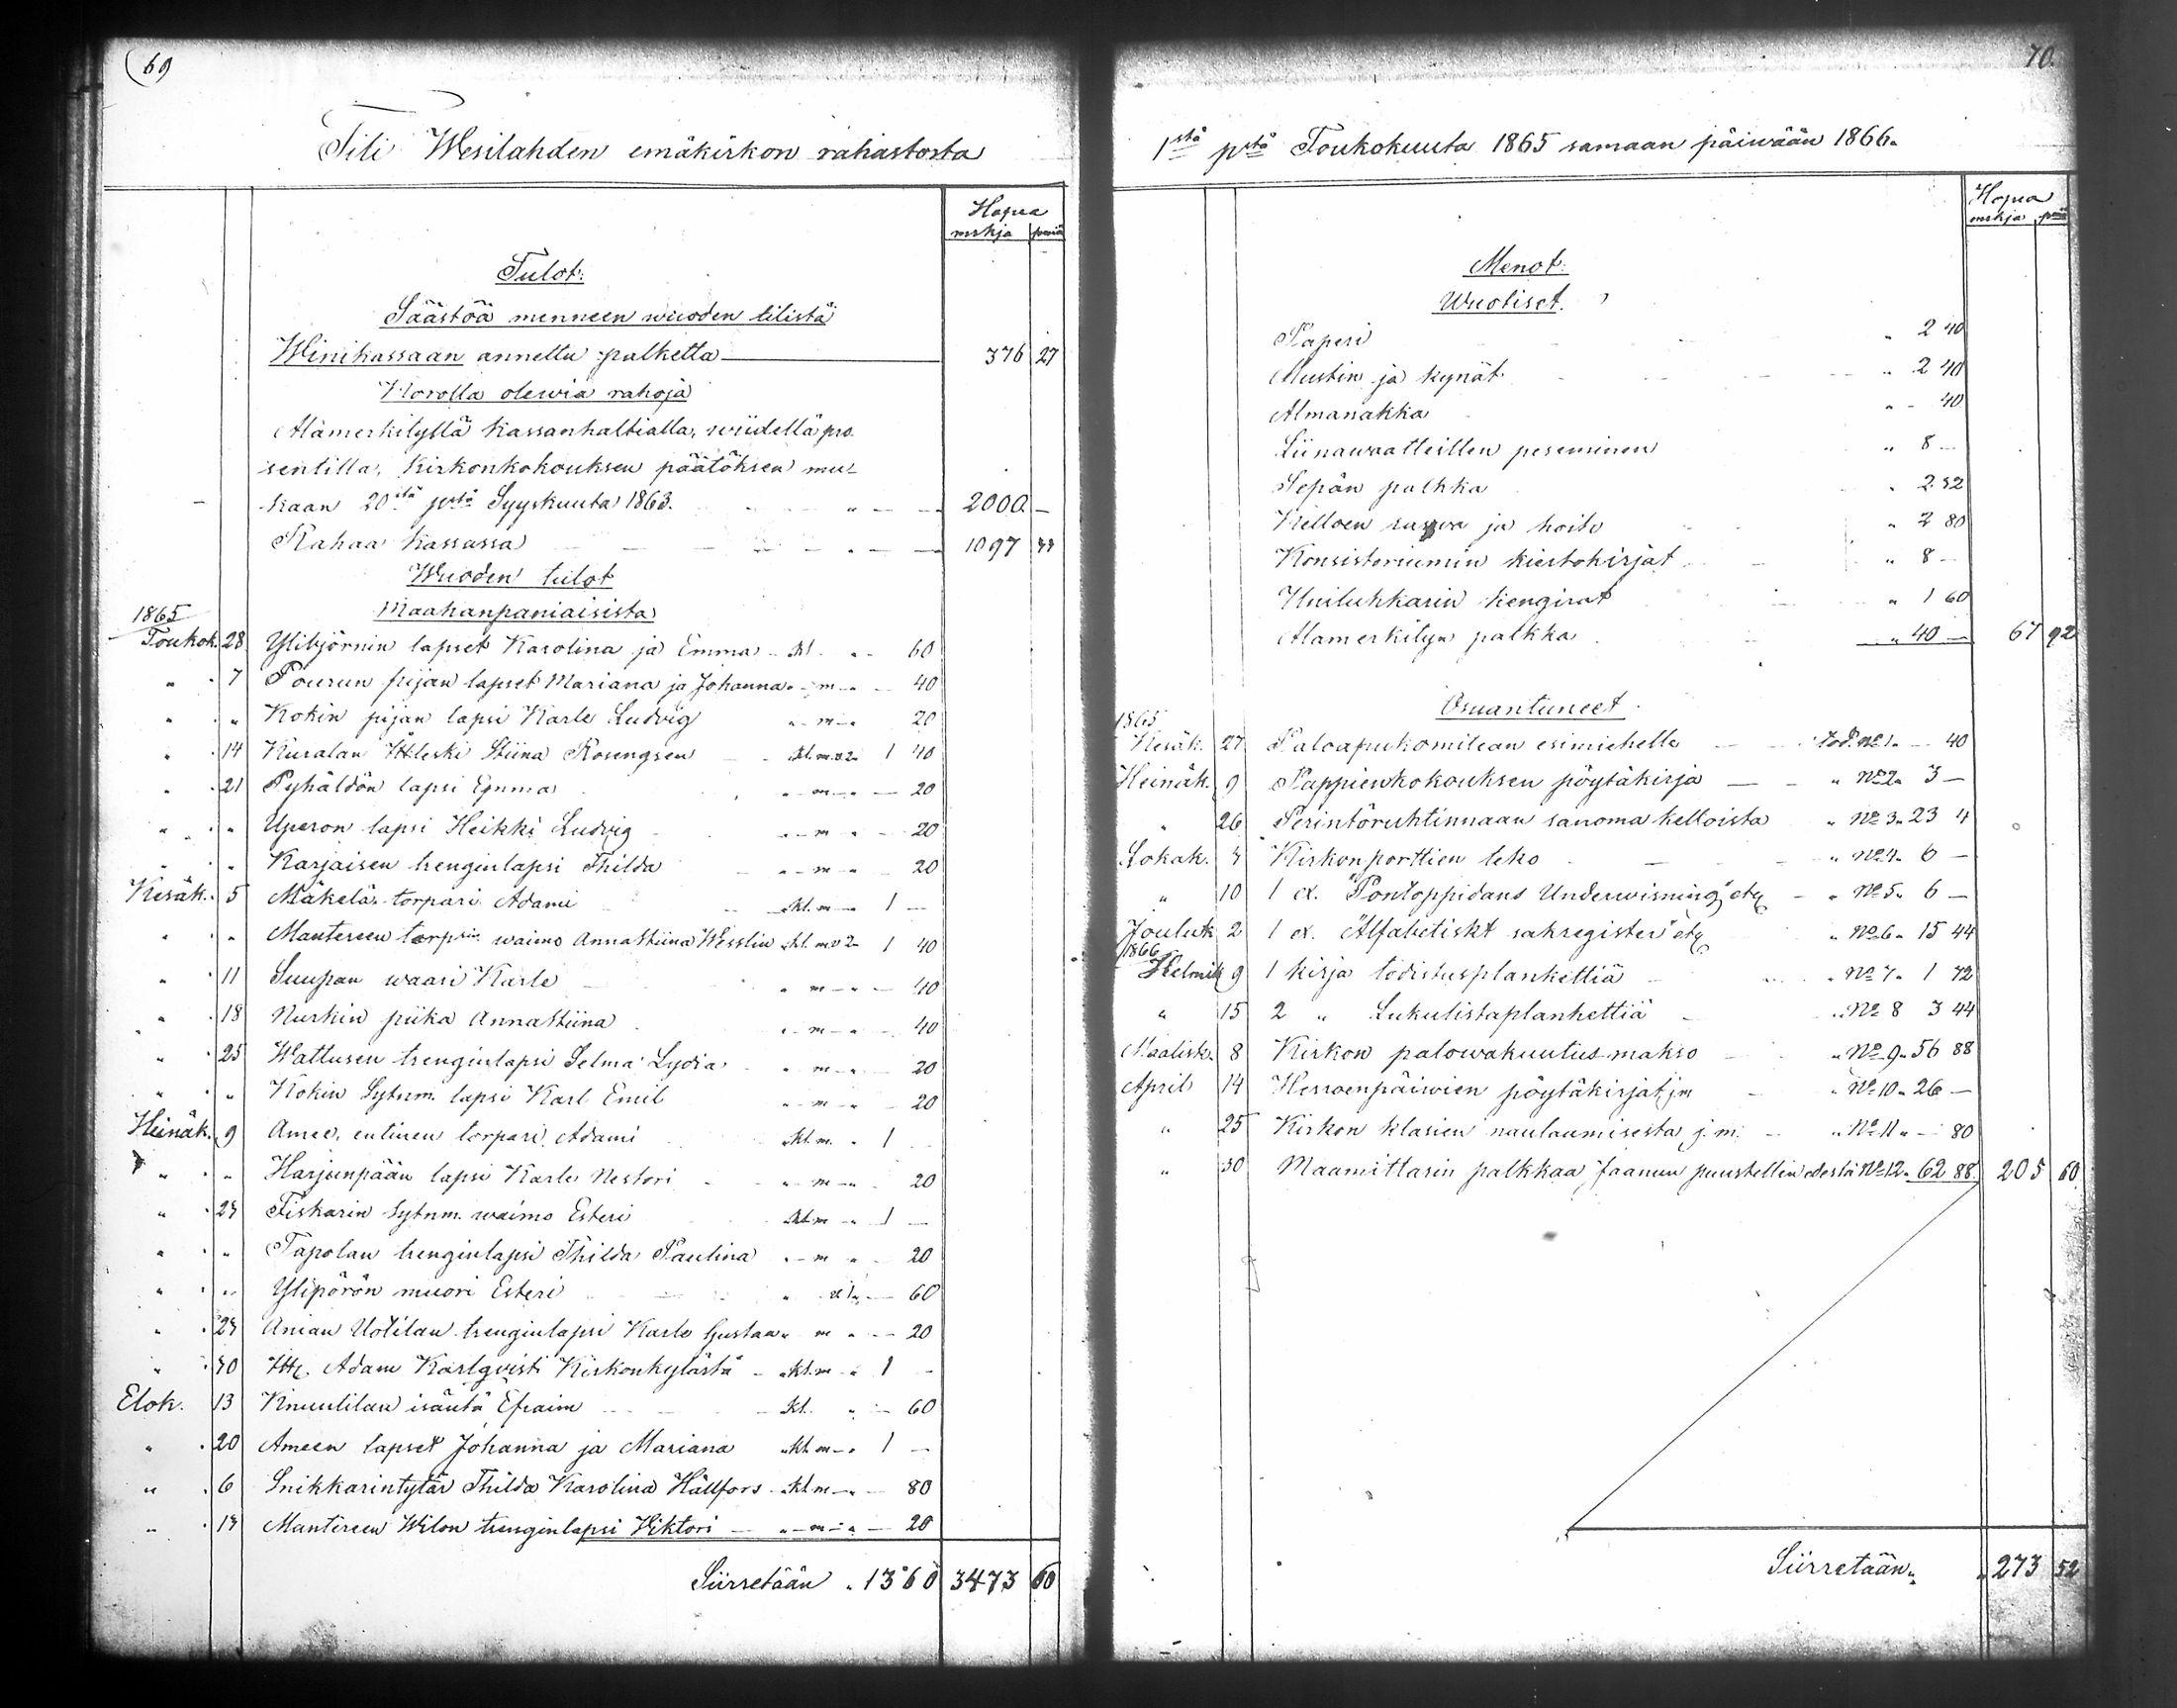 69
Tili Wesilahden emäkirkon rahastosta
Hopea
mrkja peniä
Tulot.
Säästöä menneen wuoden tilistä
Winikassaan annettu palketta 376 27
Korolla olewia rahoja
Alamerkityllä kassanhaltialla, wiidellä pro-
sentilla, Kirkonkokouksen päätöksen mu-
kaan 20stä pstä Syyskuuta 1863. 2000 —
Rahaa kassassa 1097 33
Wuoden tulot
1865
Maahanpaniaisista
Toukok. 28 Ylibjörnin lapset Karolina ja Emma kl. 60
" 7 Pourun pijan lapset Mariana ja Johanna " m " 40
" " Kokin pijan lapsi Karle Ludvig " m " 20
" 14 Kuralan Itleski Stiina Rosengren kl. m. o 2 1 40
" 21 Pyhäldön lapsi Emma " m " 20
" " Uperon lapsi Heikki Ludvig " m " 20
" " Karjaisen trenginlapsi Thilda " m " 20
Kesäk. 5 Mäkelän torpari Adami kl. m " 1 —
" " Mantereen torpin waimo Anna Stiina Wesslin kl. m o 2 1 40
" 11 Suupan waari Karle " m " 40
" 18 Nurkin piika Anna Stiina " m " 40
" 25 Wattusen trenginlapsi Selma Lydia " m " 20
" " Kokin Sytnm. lapsi Karl Emil " m " 20
Heinäk. 9 Amee, entinen torpari Adami kl. m. " 1
" " Harjunpään lapsi Karle Nestori " m " 20
" 23 Fiskarin Sytnm. waimo Esteri kl. m " 1 —
" " Tapolan trenginlapsi Thilda Paulina " m " 20
" " Ylipörön muori Esteri 60
" 23 Anian Uotilan trenginlapsi Karle Gustaa " m " 20
" 30 Adam Karlqvisti Kirkonkylästä kl. m " 1 —
Elok. 13 Knuutilan isäntä Efraim kl. " 60
" 20 Ameen lapset Johanna ja Mariana kl. m " 1 —
" 6 Snikkarintytär Thilda Karolina Hällfors kl. m " 80
" 13 Mantereen Wilon trenginlapsi Viktori " m " 20
Siirretään " 13 60 3473 60
70.
1stä pstä Toukokuuta 1865 samaan päiwään 1866.
Hopea
mrkja peniä
Menot.
Wuotiset.
Paperi " 2 40
Mustin ja kynät " 2 40
Almanakka " 40
Liinawaatteitten peseminen " 8 —
Sepän palkka " 2.32
Kelloen raswa ja hoito " 2 80
Konsistoriumin kiertokirjat " 8 —
Uniluhkarin kengirat " 1 60
Alamerkityn palkka " 40 — 67 92
Osuantuneet.
1865
Kesäk. 27 Paloapukomitean esimiehelle tod. No 1. 40
Heinäk. 9 Pappienkokouksen pöytäkirja " No 2. 3 —
" 26 Perintöruhtinnaan sanoma kelloista " No 3. 23 4
Lokak. 3 Kirkonporttien teko " No 4. 6 —
" 10 1 ex. "Pontoppidans Underwisning" etc " No 5. 6 —
Jouluk 2 1 ex. "Alfabetiskt sakregister" etc " No 6. 15 44
1866
Helmik 9 1 kirja todistusplankettiä " No 7. 1 72
" 15 2 " Lukulistaplankettiä " No 8 3 44
Maalisk. 8 Kirkon palowakuutus-makso " No 9. 56 88
April 14 Herroenpäiwien pöytäkirjat j m " No 10. 26 —
" 25 Kirkon klasien naulaamisesta j. m. " No 11 " 80
" 30 Maamittarin palkkaa Jaanun puustellin edestä No 12. 62 88. 205 60
Siirretään " 273 52